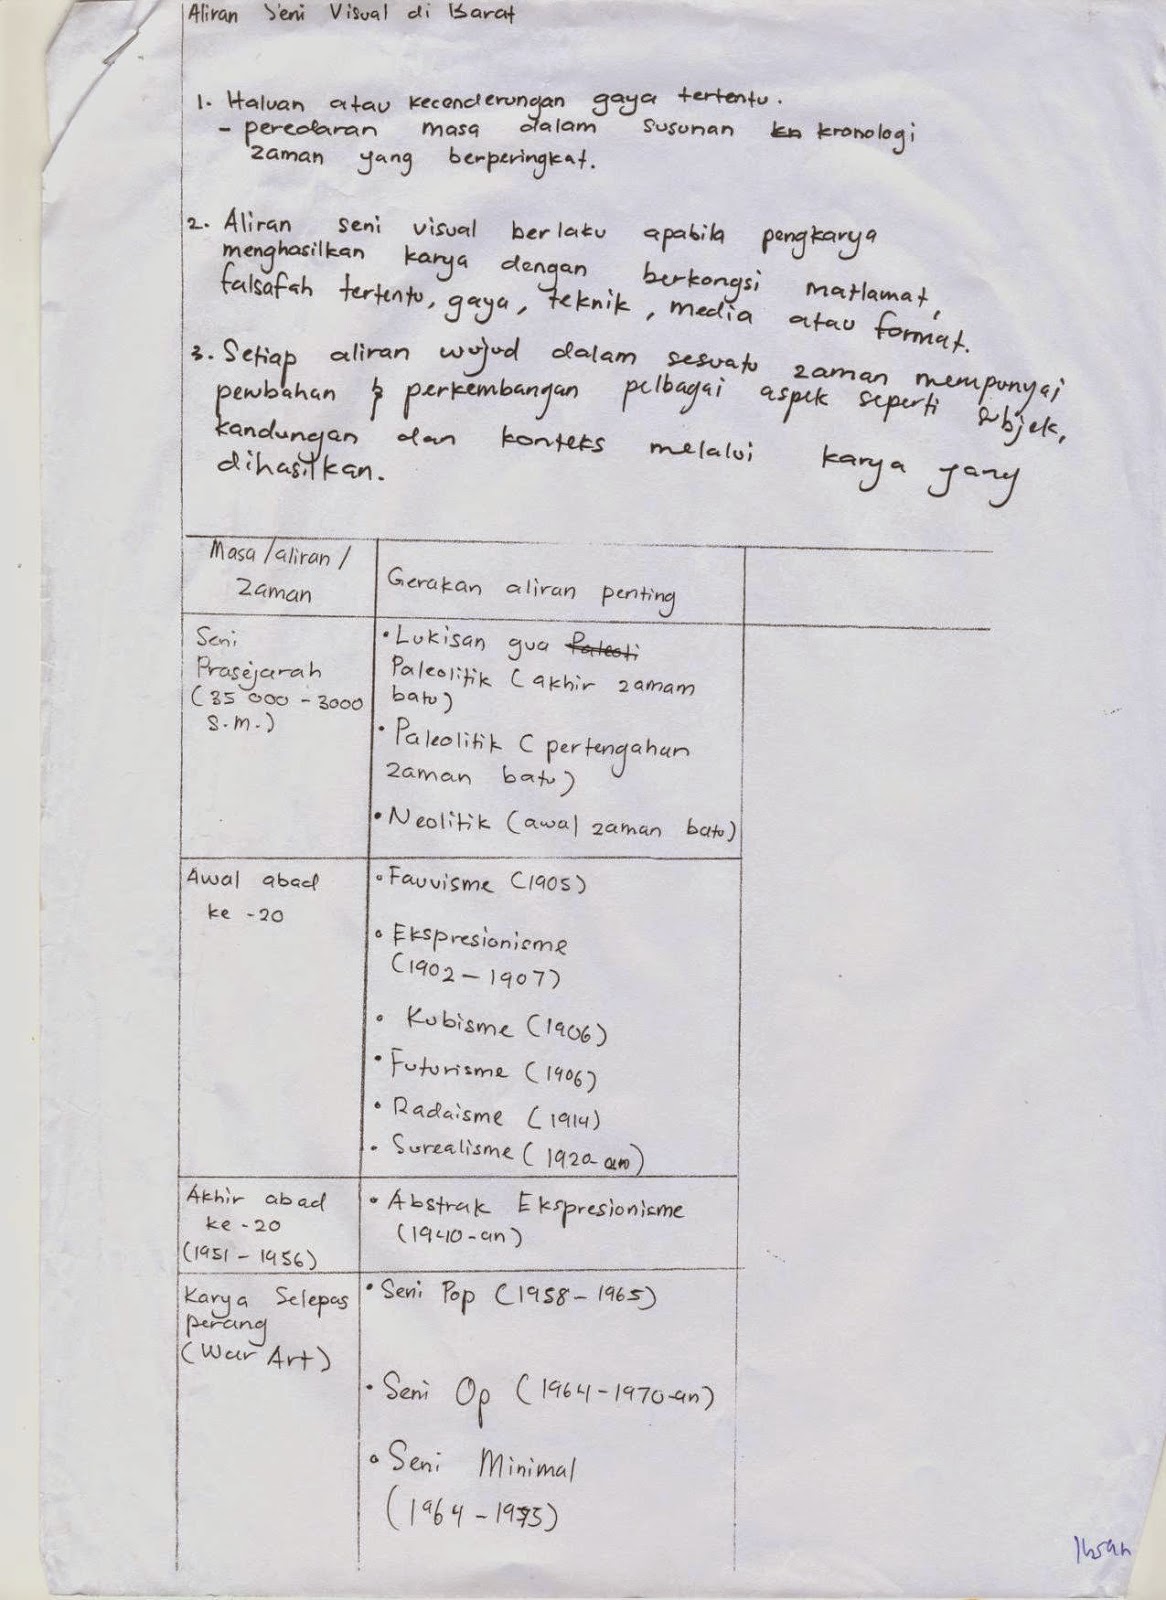 Aliran Seni Visual di Barat
1. Haluan atau kecenderungan gaya tertentu.
- peredaran masa dalam susunan kn kronologi
zaman yang berperingkat.
2. Aliran seni visual berlaku apabila pengkarya
menghasilkan karya dengan berkongsi matlamat,
falsafah tertentu, gaya, teknik, media atau format.
3. Setiap aliran wujud dalam sesuatu zaman mempunyai
perubahan & perkembangan pelbagai aspek seperti subjek,
kandungan dan konteks melalui karya yang
dihasilkan.
Masa/aliran/
Zaman
Gerakan aliran penting
Seni
Prasejarah
(35 000 - 3000
S.M.)
• Lukisan gua Paleoti
Paleolitik (akhir zamam
batu)
• Paleolitik (pertengahan
zaman batu)
• Neolitik (awal zaman batu)
Awal abad
ke -20
• Fauvisme (1905)
• Ekspresionisme
(1902 - 1907)
• Kubisme (1906)
• Futurisme (1906)
• Radaisme (1914)
• Surealisme (1920-an)
Akhir abad
ke -20
(1951 - 1956)
• Abstrak Ekspresionisme
(1940-an)
Karya Selepas
perang
(War Art)
• Seni Pop (1958 - 1965)
• Seni Op (1964 - 1970-an)
• Seni Minimal
(1964 - 1975)